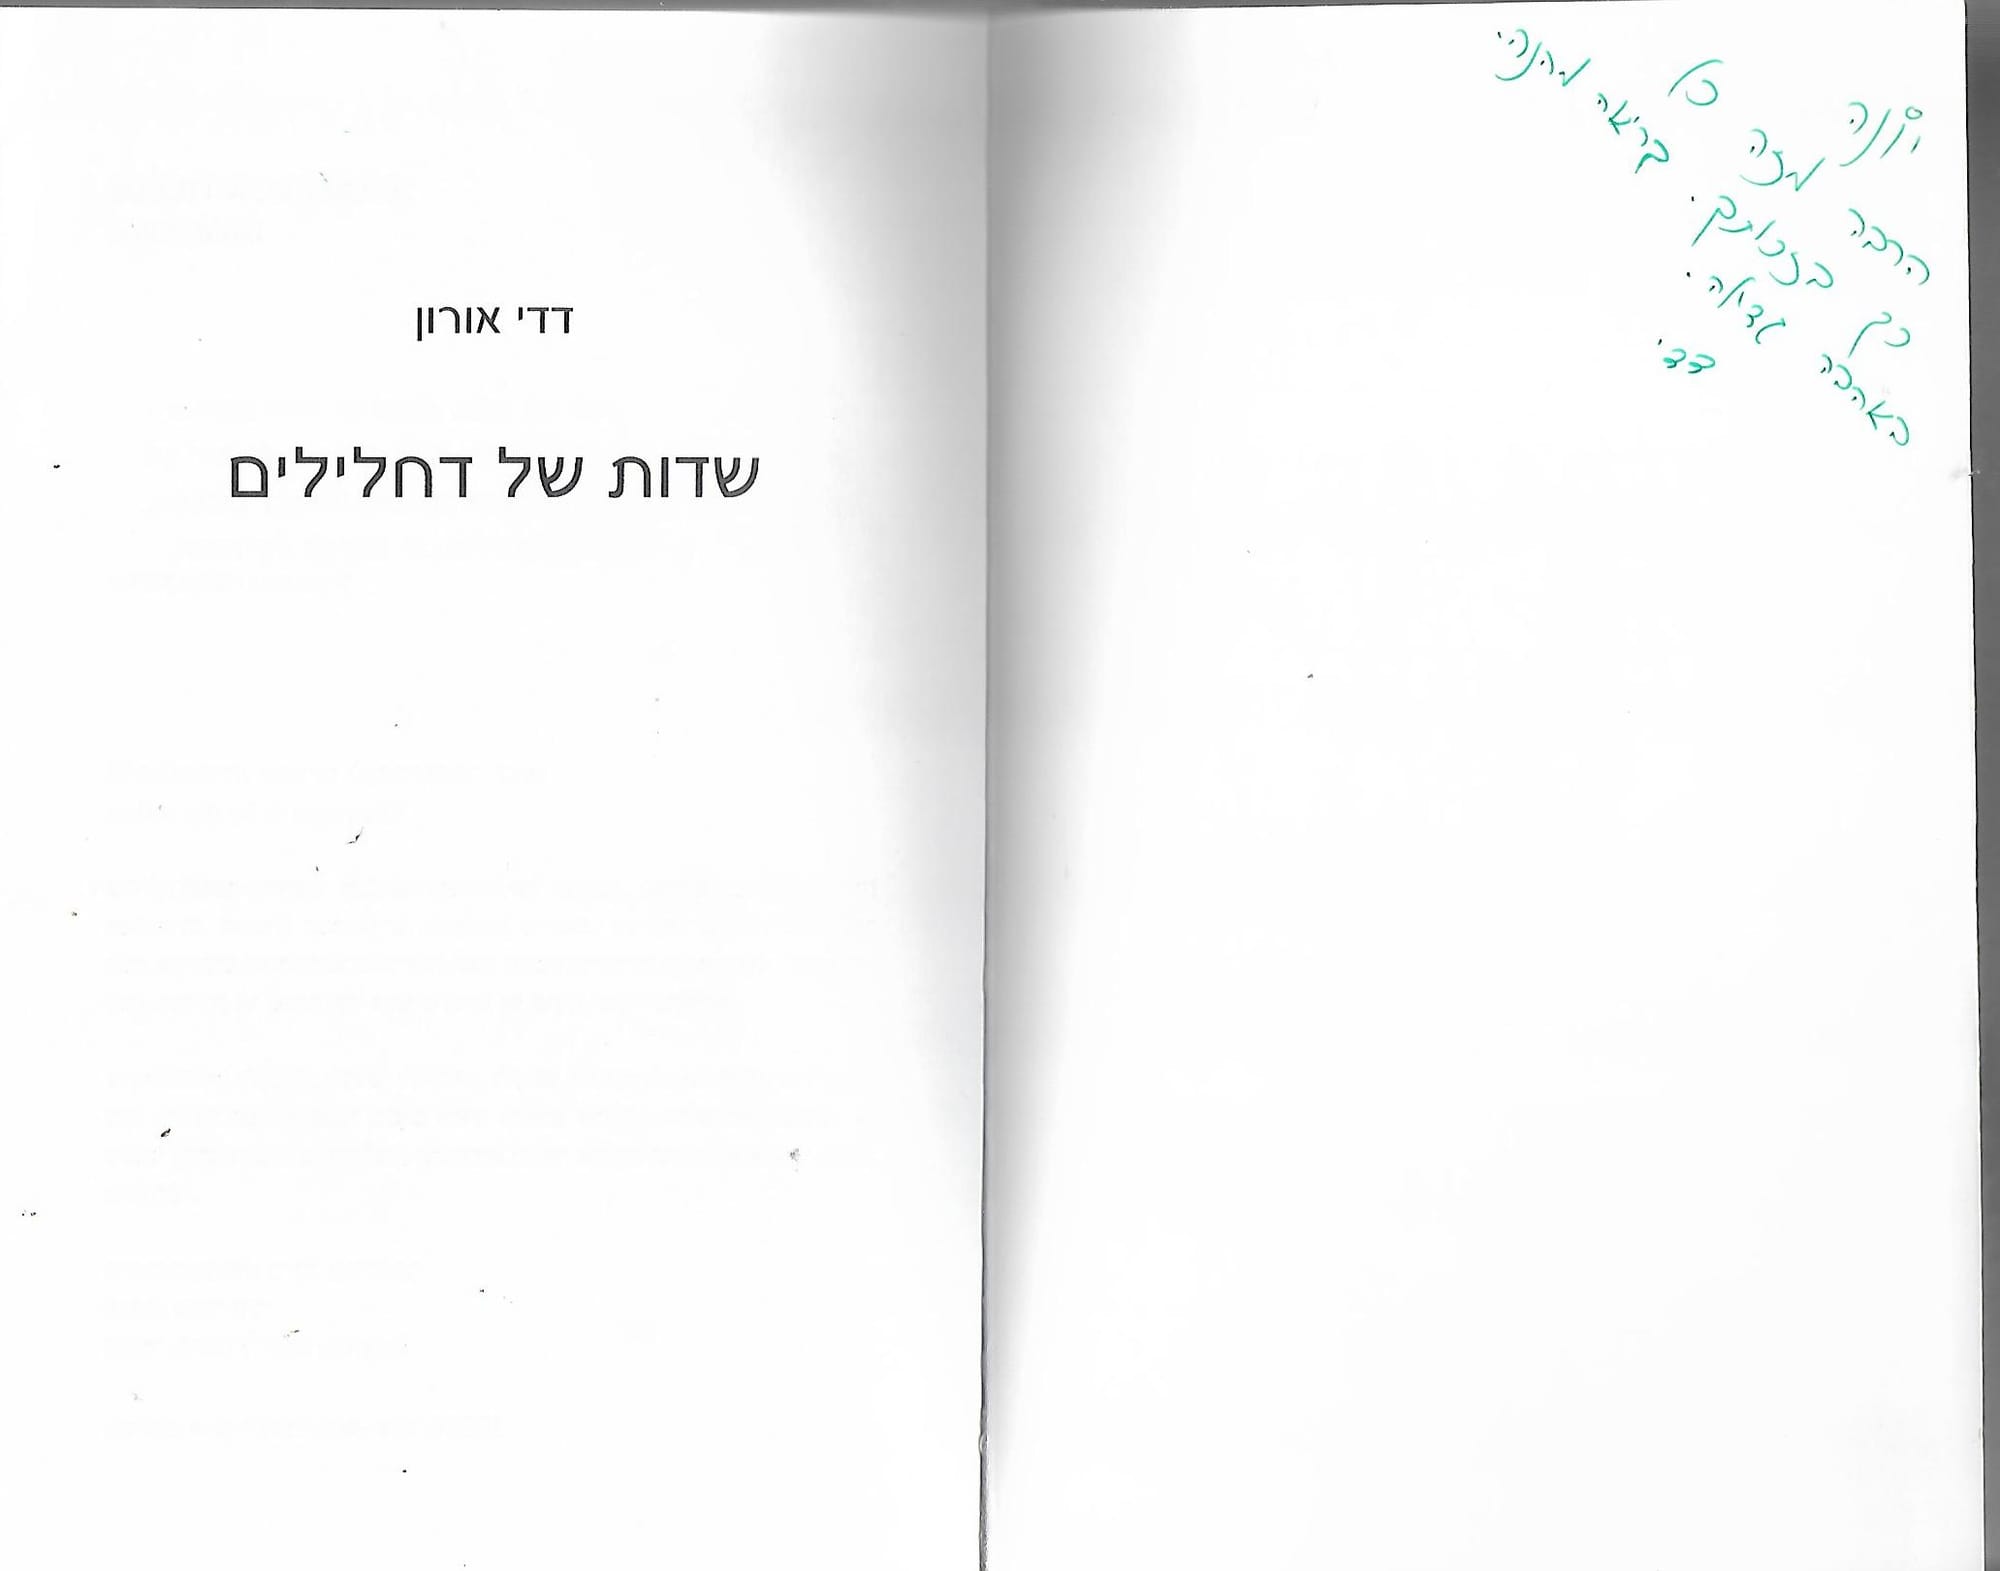 יונה
הרבה מזה כל
כך בזכותך. קריאה מהנה!
באהבה גדולה.
דדי
דדי אורון
שדות של דחלילים